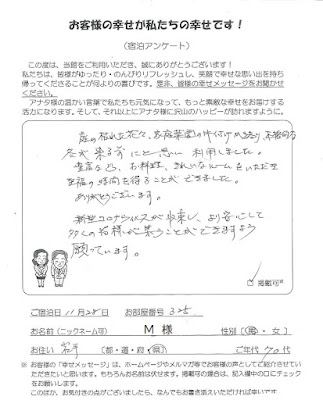 お客様の幸せが私たちの幸せです！
（宿泊アンケート）
この度は、当館をご利用いただき、誠にありがとうございます！
私たちは、皆様がゆったり・のんびりリフレッシュし、笑顔で幸せな思い出を持ち
帰ってくださることが何よりの喜びです。是非、皆様の幸せメッセージをお聞かせ
ください。
アナタ様の温かい言葉で私たちも元気になって、もっと素敵な幸せをお届けする
活力になります。そして、それ以上にアナタ様に沢山のハッピーが訪れますように。
庭の枯れた花々、家庭菜園の片付けが終り、本格的な
冬が来る前にと思い利用しました。
豊富な、お料理、きれいなルームをいただき
至福の時間を得ることができました。
ありがとうございます。
新型コロナウィルスが収束し、より安心して
多くの皆様が集うことができますよう
願っています。
掲載可*
ご宿泊日 11月28日 お部屋番号 325
お名前(ニックネーム可) M 様 性別(男・女)
お住い 岩手 （都・道・府・県） ご年代 70代
※ お客様の「幸せメッセージ」は、ホームページやメルマガ等でお客様の声としてご紹介させてい
ただきたいと思います。もちろんお名前は伏せます。掲載可の場合は、記入欄中の口にチェック
をお願いします。
このほか、お気付きの点がございましたら、なんでもお書き添えいただければ幸いです